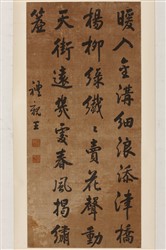 暖入金溝細浪添津橋
楊柳綠纖〻賣花聲動
天街遠幾處春風揭繡
簾
禮親王